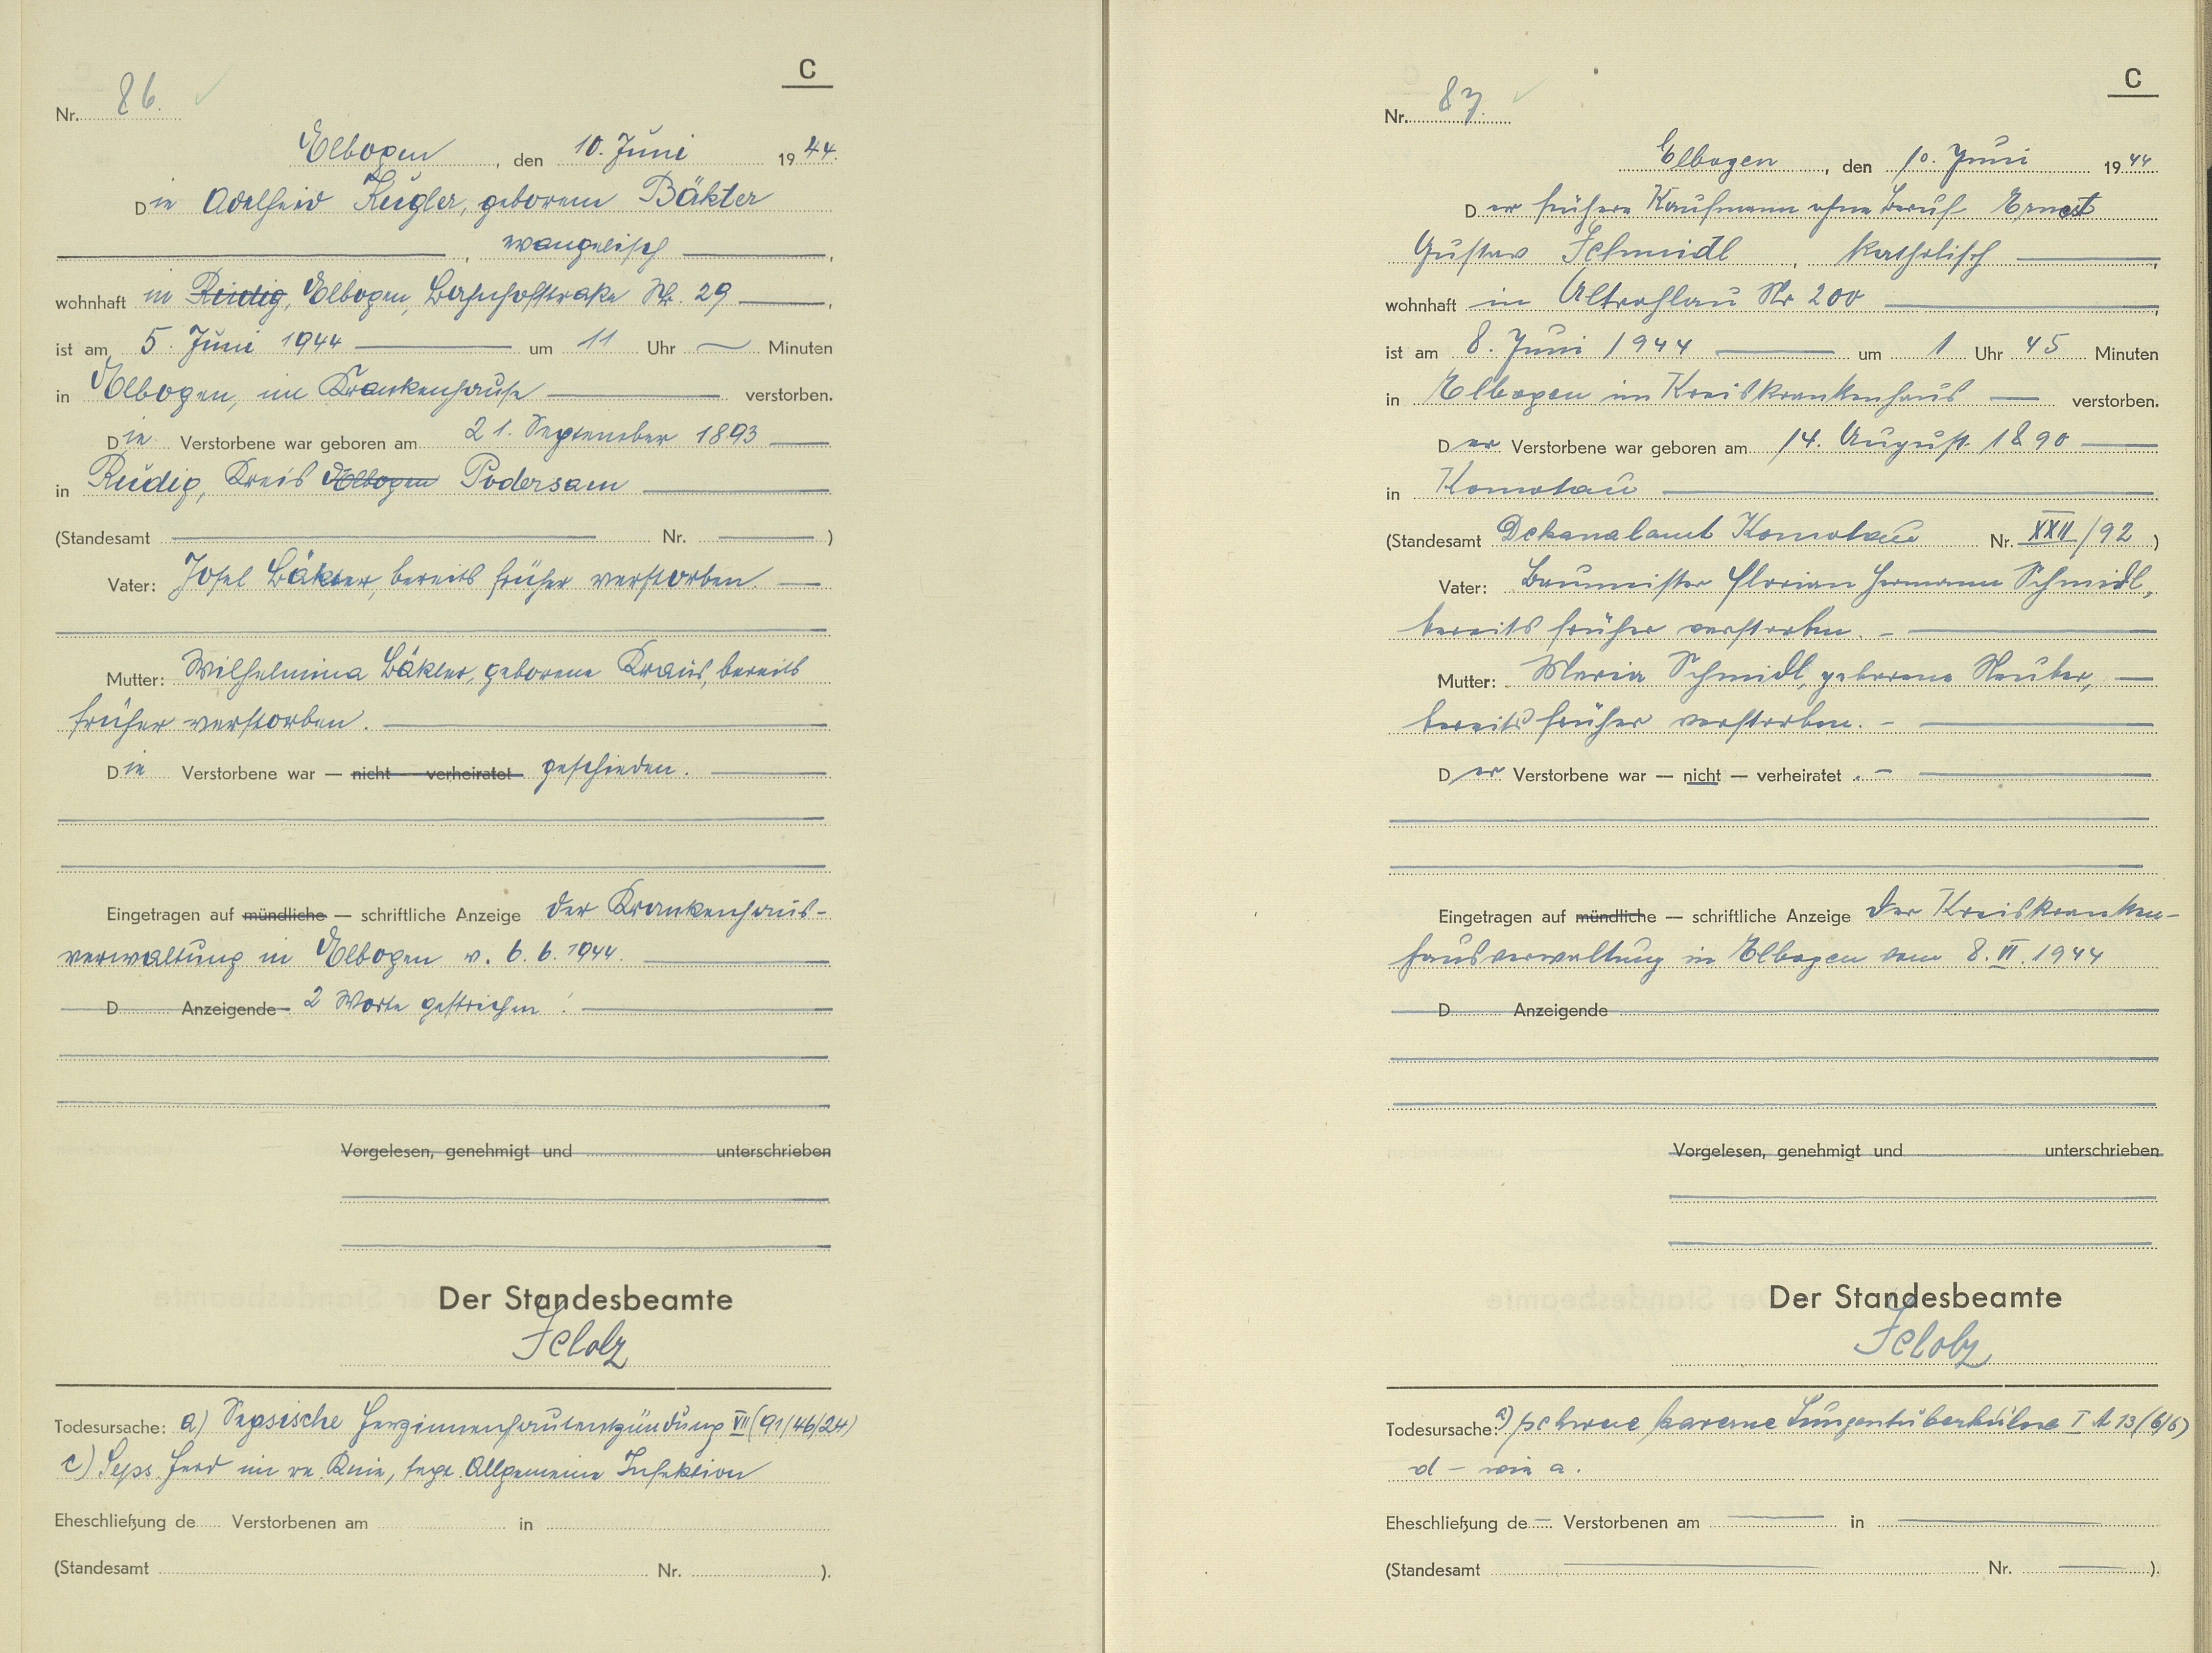 C
Nr. 86.
Elbogen, den 10. Juni 1944.
Die Adelheid Kugler, geborene Bäkter
, evangelisch,
wohnhaft in Reidig, Elbogen, Bahnhofstraße Nr. 29,
ist am 5. Juni 1944 um 11 Uhr — Minuten
in Elbogen, im Krankenhause verstorben.
Die Verstorbene war geboren am 21. September 1893
in Rudig, Kreis Elbogen Podersam
(Standesamt Nr. )
Vater: Josef Bäkter, bereits früher verstorben.
Mutter: Wilhelmina Bäkter, geborene Kraus, bereits
früher verstorben.
Die Verstorbene war — nicht — verheiratet geschieden.
Eingetragen auf mündliche — schriftliche Anzeige der Krankenhaus-
verwaltung in Elbogen v. 6.6.1944.
D Anzeigende 2 Worte gestrichen!
Vorgelesen, genehmigt und unterschrieben
Der Standesbeamte
Todesursache: a) Sepsische Herzinnenhautentzündung VII (91/46/24)
c) Seps. Herd im re Knie, Allgemeine Infektion
Eheschließung de Verstorbenen am in
(Standesamt Nr. ).
C
Nr. 87.
Elbogen, den 10. Juni 1944
Der frühere Kaufmann ohne Beruf Ernest
Gustav Schmidl, katholisch,
wohnhaft in Altrohlau Nr 200,
ist am 8. Juni 1944 um 1 Uhr 45 Minuten
in Elbogen im Kreiskrankenhaus verstorben.
Der Verstorbene war geboren am 14. August 1890
in Komotau
(Standesamt Dekanalamt Komotau Nr. XXII/92)
Vater: Baumeister Florian Hermann Schmidl,
bereits früher verstorben. -
Mutter: Maria Schmidl, geborene Neuber,
bereits früher verstorben. -
Der Verstorbene war — nicht — verheiratet. -
Eingetragen auf mündliche — schriftliche Anzeige der Kreiskranken-
hausverwaltung in Elbogen vom 8.VI.1944
D Anzeigende
Vorgelesen, genehmigt und unterschrieben
Der Standesbeamte
Todesursache: a) schwere kaverne Lungentuberkulose I A 13 (6/6)
d - wie a.
Eheschließung de — Verstorbenen am in
(Standesamt Nr. ).